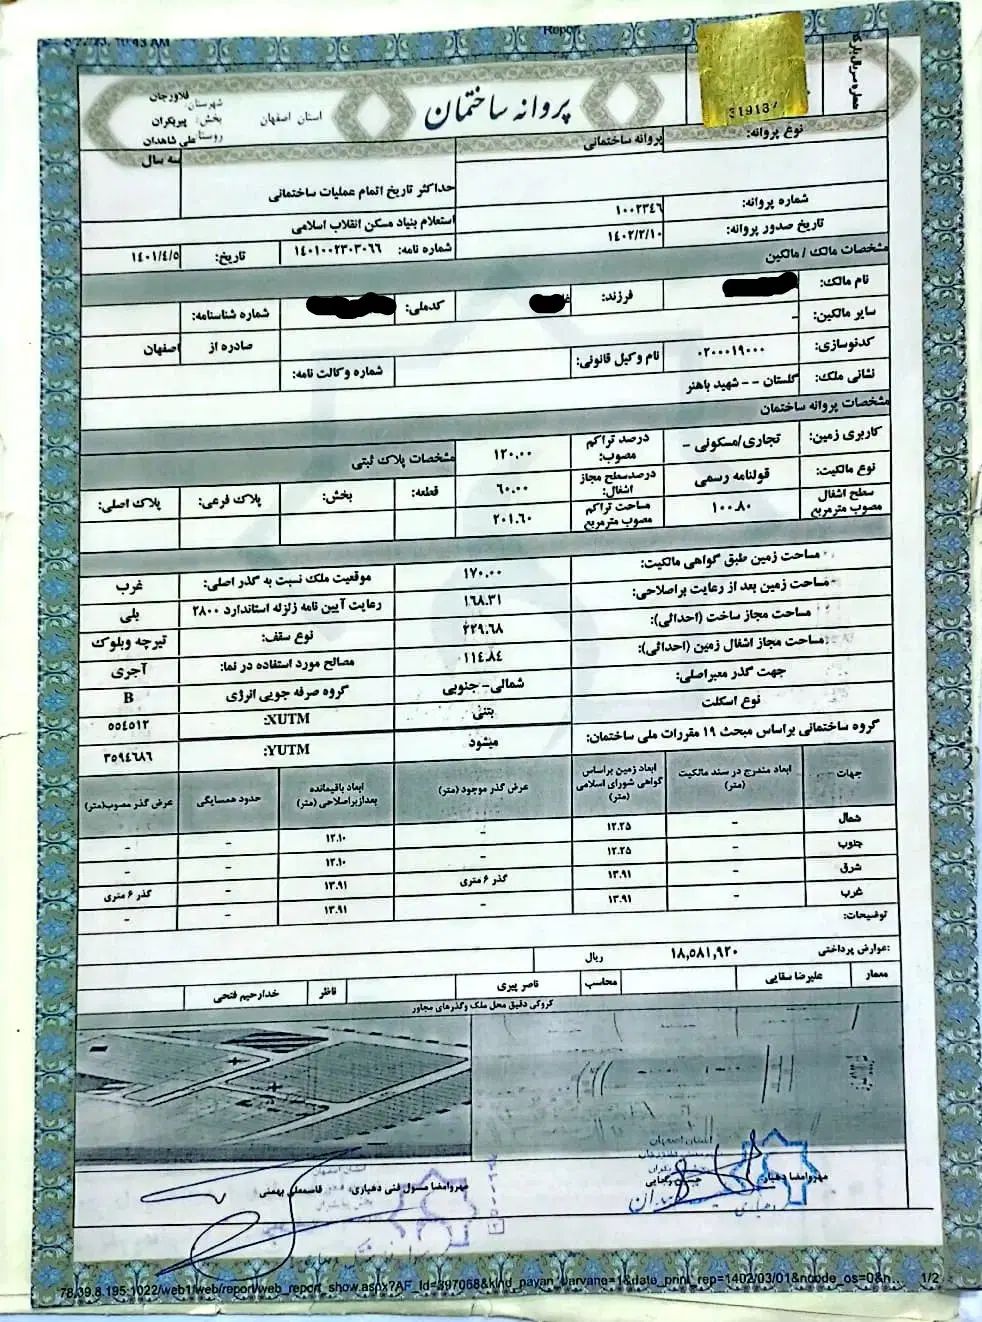 10:43 AM
Repo
شماره سریال بارکد
31913
پروانه ساختمان
استان اصفهان
شهرستان: فلاورجان
بخش: پیربکران
روستا: علی شاهدان
نوع پروانه: پروانه ساختمانی
سه سال
حداکثر تاریخ اتمام عملیات ساختمانی
شماره پروانه: ۱۰۰۲۳۴۶
استعلام بنیاد مسکن انقلاب اسلامی
تاریخ صدور پروانه: ۱۴۰۲/۲/۱۰
شماره نامه: ۱۴۰۱۰۰۲۳۰۳۰۶۶ تاریخ: ۱۴۰۱/۴/۵
مشخصات مالک / مالکین
نام مالک: فرزند: کدملی: شماره شناسنامه:
سایر مالکین: - صادره از اصفهان
کدنوسازی: ۰۲۰۰۰۱۹۰۰۰ نام وکیل قانونی: شماره وکالت نامه:
نشانی ملک: گلستان - - شهید باهنر
مشخصات پروانه ساختمان
کاربری زمین: تجاری/مسکونی - درصد تراکم مصوب: ۱۲۰.۰۰ مشخصات پلاک ثبتی
نوع مالکیت: قولنامه رسمی درصدسطح مجاز اشغال: ۶۰.۰۰ قطعه: بخش: پلاک فرعی: پلاک اصلی:
سطح اشغال مصوب مترمربع ۱۰۰.۸۰ مساحت تراکم مصوب مترمربع ۲۰۱.۶۰
مساحت زمین طبق گواهی مالکیت: ۱۷۰.۰۰ موقعیت ملک نسبت به گذر اصلی: غرب
مساحت زمین بعد از رعایت براصلاحی: ۱۶۸.۳۱ رعایت آیین نامه زلزله استاندارد ۲۸۰۰ بلی
مساحت مجاز ساخت (احداثی): ۲۲۹.۶۸ نوع سقف: تیرچه وبلوک
مساحت مجاز اشغال زمین (احداثی): ۱۱۴.۸۴ مصالح مورد استفاده در نما: آجری
جهت گذر معبراصلی: شمالی- جنوبی گروه صرفه جویی انرژی B
نوع اسکلت بتنی XUTM: ۵۵۴۵۱۲
گروه ساختمانی براساس مبحث ۱۹ مقررات ملی ساختمان: میشود YUTM: ۳۵۹۴۶۸۶
جهات ابعاد مندرج در سند مالکیت (متر) ابعاد زمین براساس گواهی شورای اسلامی (متر) عرض گذر موجود (متر) ابعاد باقیمانده بعدازبراصلاحی (متر) حدود همسایگی عرض گذر مصوب(متر)
شمال - ۱۲.۲۵ - ۱۲.۱۰ - -
جنوب - ۱۲.۲۵ - ۱۲.۱۰ - -
شرق - ۱۳.۹۱ گذر ۶ متری ۱۳.۹۱ - گذر ۶ متری
غرب - ۱۳.۹۱ - ۱۳.۹۱ - -
توضیحات:
عوارض پرداختی: ۱۸,۵۸۱,۹۲۰ ریال
معمار علیرضا سقایی محاسب ناصر پیری ناظر خدارحیم فتحی
کروکی دقیق محل ملک وگذرهای مجاور
استان اصفهان
مهروامضا دهیار
مهروامضا مسول فنی دهیاری: قاسمعلی بهمنی
78.39.8.195:1022/web1/web/report/web_report_show.aspx?AF_Id=397068&kind_payan_parvane=1&date_print_rep=1402/03/01&ncode_os=0&n... 1/2